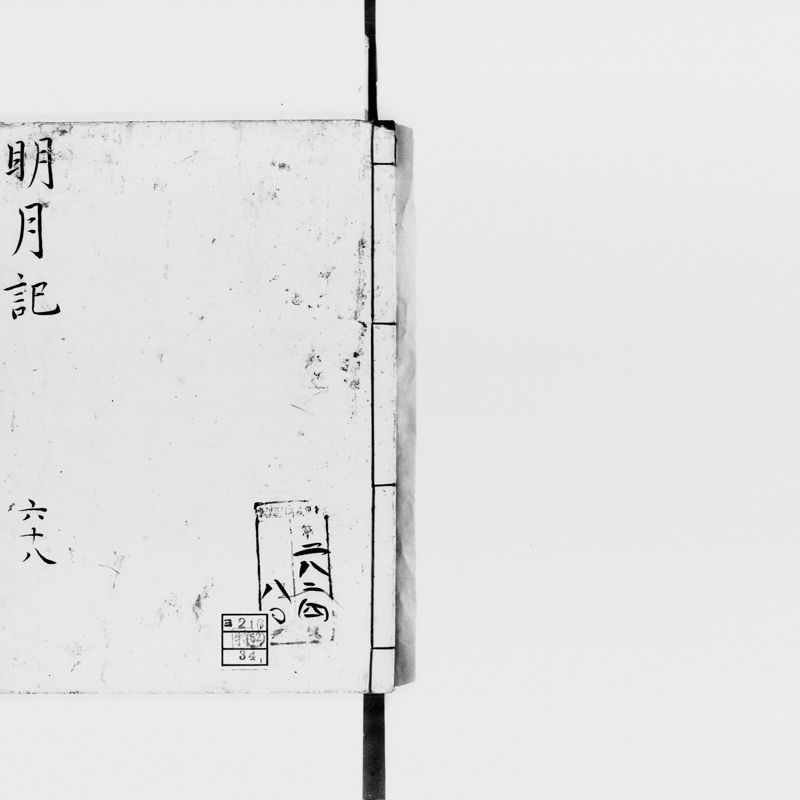 明月記
六十八
第
二八二四
八〇
ヨ 216
34